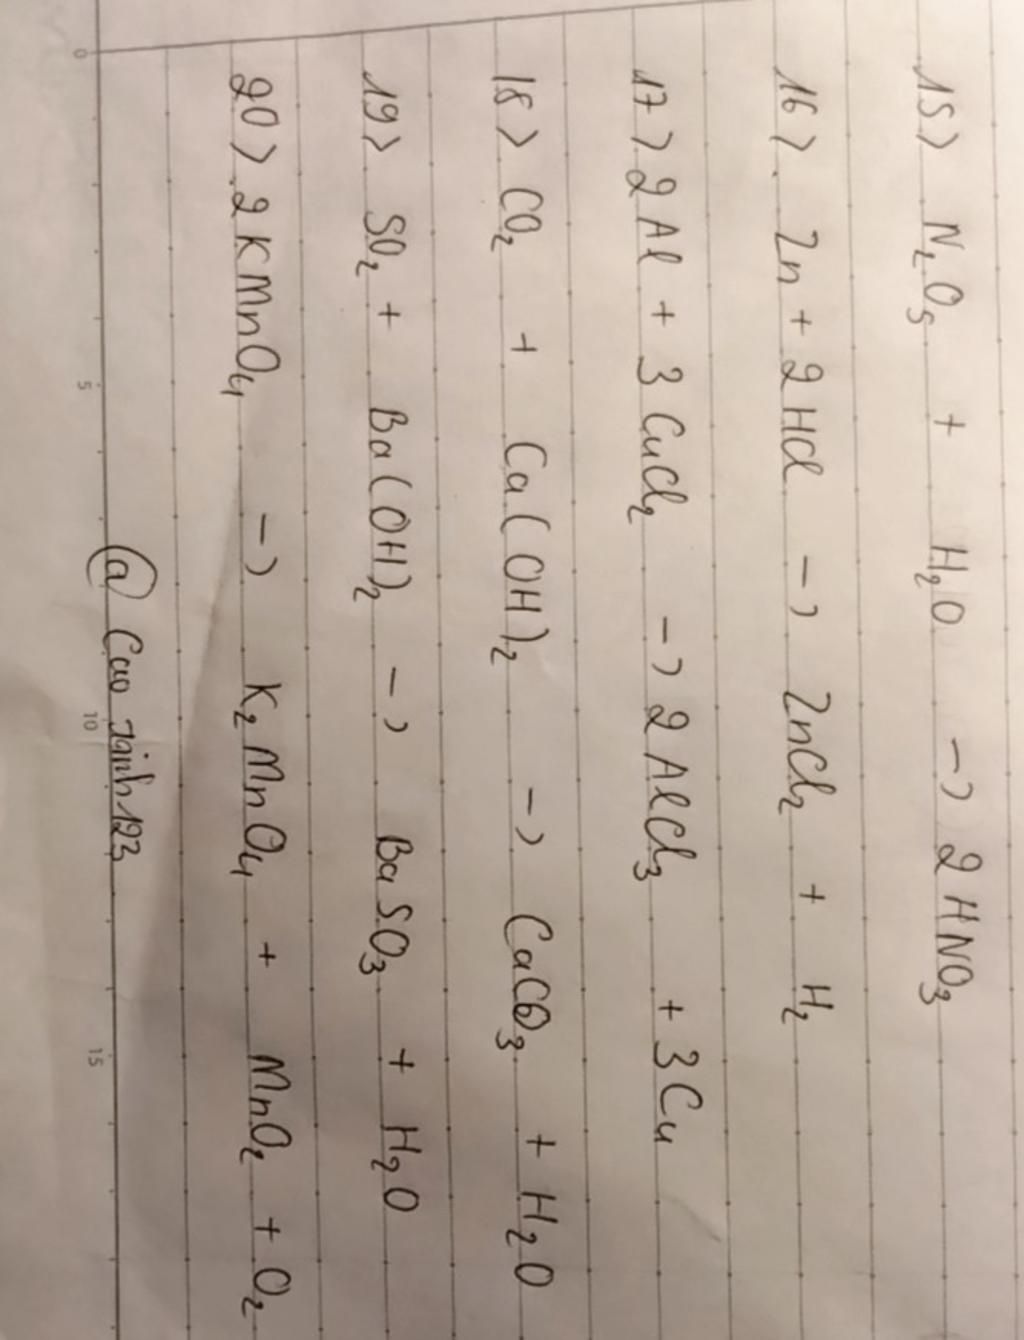 15> N₂O₅ + H₂O -> 2HNO₃
16> Zn + 2HCl -> ZnCl₂ + H₂
17> 2Al + 3CuCl₂ -> 2AlCl₃ + 3Cu
18> CO₂ + Ca(OH)₂ -> CaCO₃ + H₂O
19> SO₂ + Ba(OH)₂ -> BaSO₃ + H₂O
20> 2KMnO₄ -> K₂MnO₄ + MnO₂ + O₂
0 5 10 15
@ Cao 123